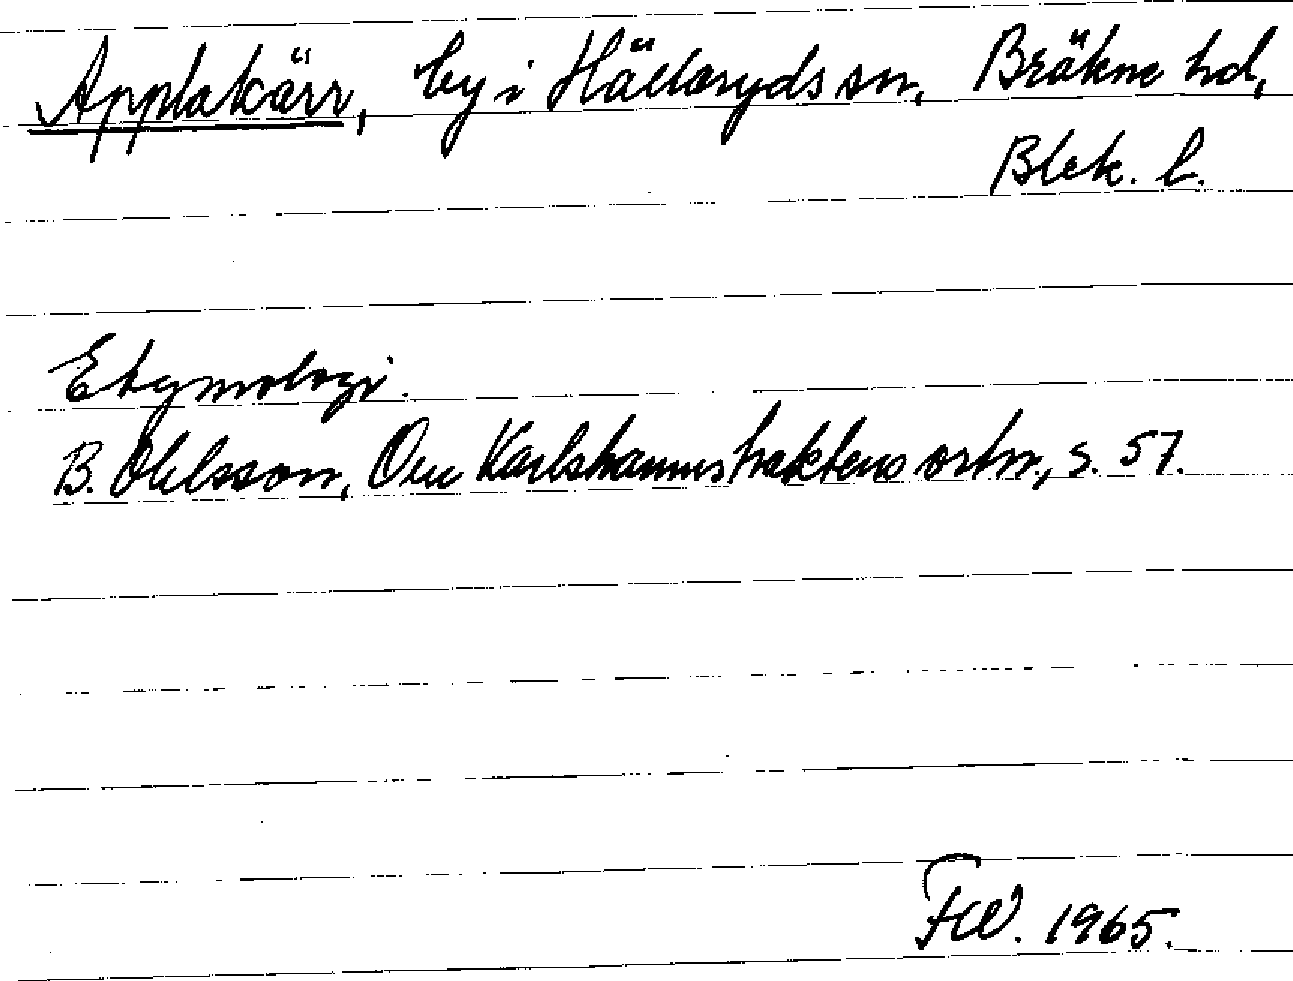 Applakärr, by i Hällaryds sn, Bräkne hd,
Blek. l.
Etymologi.
B. Ohlsson, Om Karlshamnstraktens ortn., s. 57.
FW. 1965.